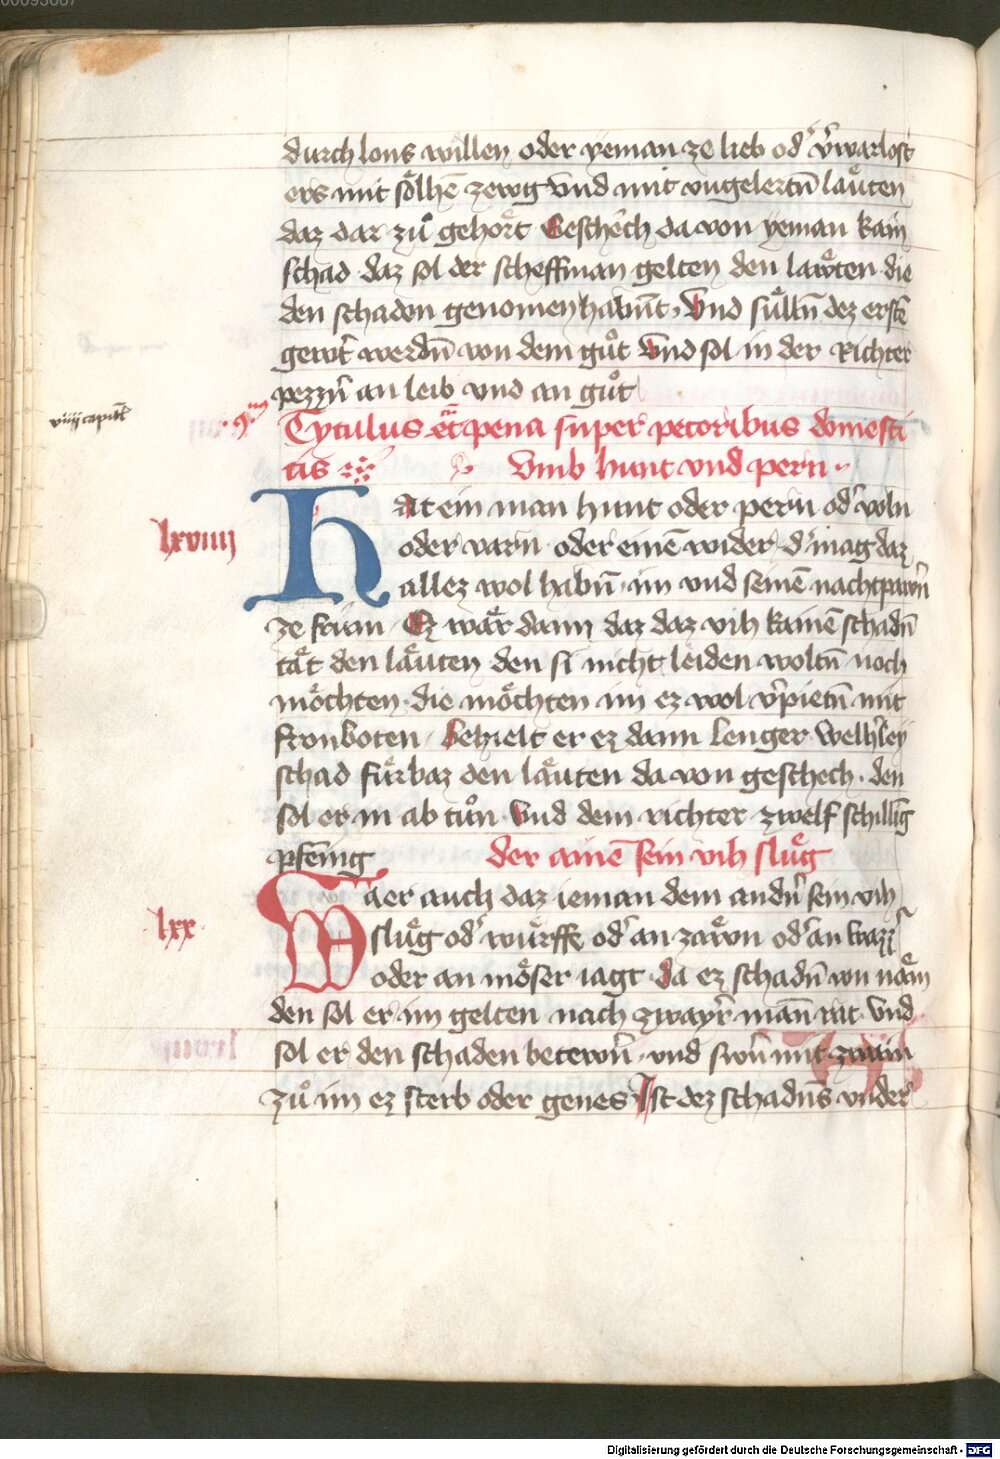 00093667
durch lons willen oder yeman ze lieb od' v'warlost
ers mit soͤlhē zewg vnd mit vngelertn̄ laͤuten
daz dar zuͦ gehoͤrt Geschech da von yeman kain
schad daz sol der scheffman gelten den laͤwten die
den schaden genomen habn̄t Vnd suͤlln̄ dez erstē
gewert werdn̄ von dem guͦt Vnd sol in der Richter
pezzn̄ an leib vnd an guͦt
viiij capitl̄
Tytulus et pena super pecoribus domesti
tis Vmb hunt vnd pern
lxviiij
Hat ein man hunt oder pern od' voln
oder varn oder einē wider d' mag daz
allez wol habn̄ im vnd seinē nachtpawrn
ze frum Ez waͤr dann daz daz vih kainē schadn̄
taͤt den laͤuten den si nicht leiden woltn̄ noch
moͤchten die moͤchten im ez wol v'pietn̄ mit
fronboten Behielt er ez dann lenger Welh'ley
schad fuͤrbaz den laͤuten da von geschech den
sol er in ab tuͦn Vnd dem richter zwelf schilling
pfēnig der ainē sein vih sluͤg
lxx
Waer auch daz ieman dem andn̄ sein vih
sluͤg od' wuͤrffe od' an zaͤwn od' an wazz'
oder an moͤser iagt da ez schadn̄ von naͤm
den sol er im gelten nach zwayr mann rat Vnd
sol er den schaden betewrn vnd swern mit zwain
zuͦ im ez sterb oder genes Ist dez schadns vnder
Digitalisierung gefördert durch die Deutsche Forschungsgemeinschaft - DFG